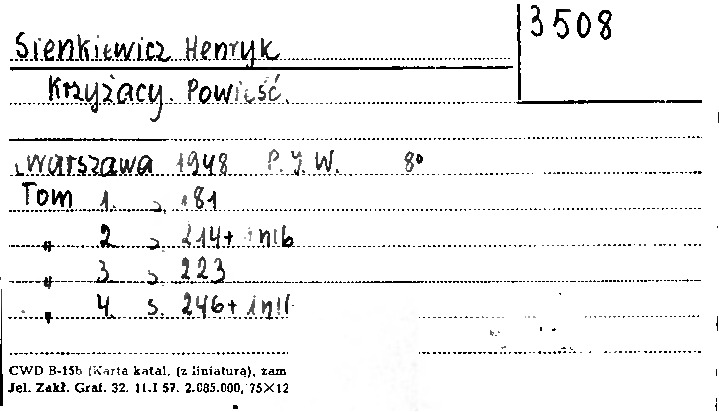 3508
Sienkiewicz Henryk
Krzyżacy. Powieść.
Warszawa 1948 P.J.W. 8°
Tom 1. s. 181
" 2 s. 214+1nlb
" 3 s. 223
" 4. s. 246+1nll
CWD B-15b (Karta katal. (z liniaturą), zam
Jel. Zakł. Graf. 32. 11.I 57. 2.085.000, 75×12